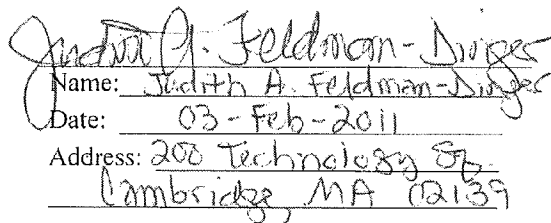 Judith A. Feldman-Dinger
Name: Judith A. Feldman-Dinger
Date: 03-Feb-2011
Address: 200 Technology Sq.
Cambridge MA 02139